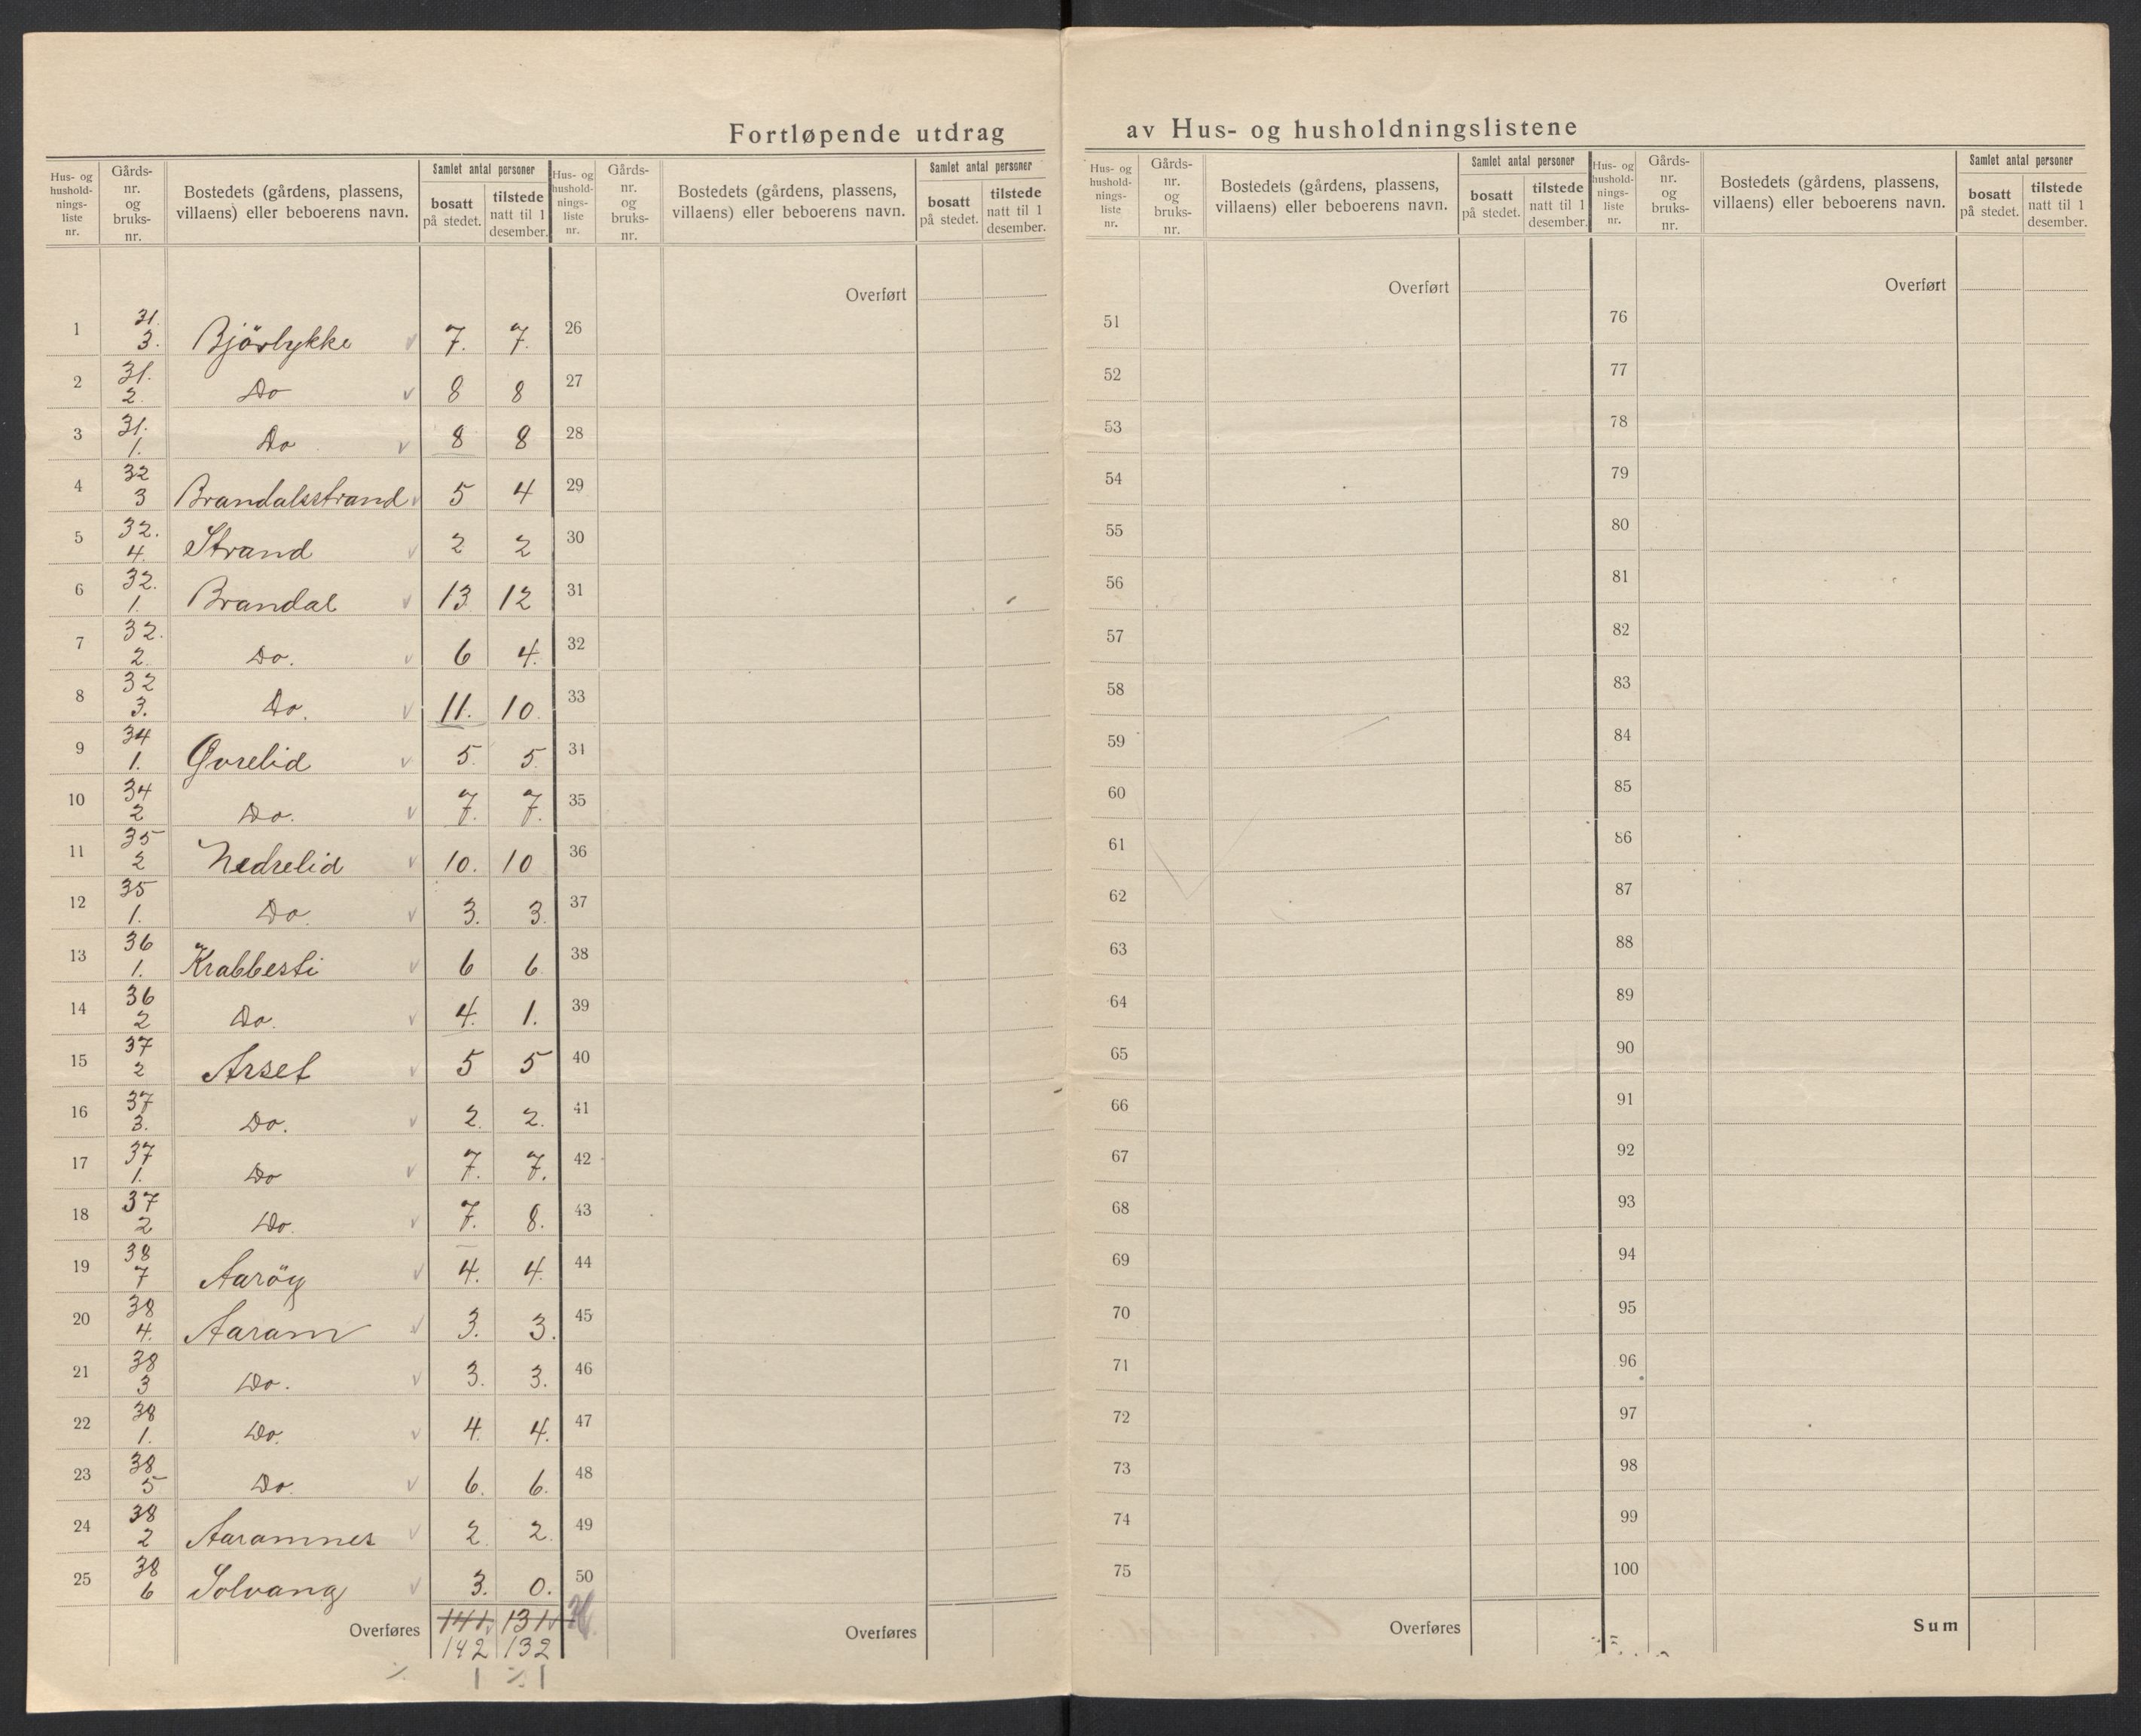 Fortløpende utdrag av Hus- og husholdningslistene
Hus- og hushold- nings- liste nr. | Gårds- nr. og bruks- nr. | Bostedets (gårdens, plassens, villaens) eller beboerens navn. | Samlet antal personer | bosatt på stedet. | tilstede natt til 1 desember.
Hus- og hushold- nings- liste nr. | Gårds- nr. og bruks- nr. | Bostedets (gårdens, plassens, villaens) eller beboerens navn. | Samlet antal personer | bosatt på stedet. | tilstede natt til 1 desember.
Hus- og hushold- nings- liste nr. | Gårds- nr. og bruks- nr. | Bostedets (gårdens, plassens, villaens) eller beboerens navn. | Samlet antal personer | bosatt på stedet. | tilstede natt til 1 desember.
Hus- og hushold- nings- liste nr. | Gårds- nr. og bruks- nr. | Bostedets (gårdens, plassens, villaens) eller beboerens navn. | Samlet antal personer | bosatt på stedet. | tilstede natt til 1 desember.
Overført Overført Overført
1 31. 3. Bjørlykke 7. 7. 26 51 76
2 31. 2. Do 8 8 27 52 77
3 31. 1. Do 8 8 28 53 78
4 32 3 Brandalsstrand 5 4 29 54 79
5 32. 4. Strand 2 2 30 55 80
6 32. 1. Brandal 13 12 31 56 81
7 32. 2. Do. 6 4. 32 57 82
8 32 3. Do. 11. 10. 33 58 83
9 34 1. Øvrelid 5. 5. 31 59 84
10 34 2 Do. 7. 7. 35 60 85
11 35 2 Nedrelid 10. 10 36 61 86
12 35 1. Do. 3. 3. 37 62 87
13 36 1. Krabbesti 6 6 38 63 88
14 36 2 Do. 4. 1. 39 64 89
15 37 2 Arset 5 5 40 65 90
16 37 3. Do. 2. 2. 41 66 91
17 37 1. Do 7. 7. 42 67 92
18 37 2 Do. 7. 8. 43 68 93
19 38 7 Aaröy 4. 4. 44 69 94
20 38 4. Aaram 3. 3. 45 70 95
21 38 3 Do. 3. 3. 46 71 96
22 38 1. Do. 4. 4. 47 72 97
23 38 5 Do. 6. 6. 48 73 98
24 38 2 Aaramnes 2. 2. 49 74 99
25 38 6 Solvang 3. 0. 50 75 100
Overføres 141. 131 Overføres Overføres Sum
142 132